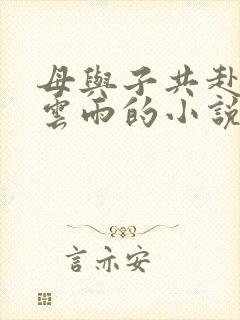 母與子共赴
雲雨的小說
言亦安